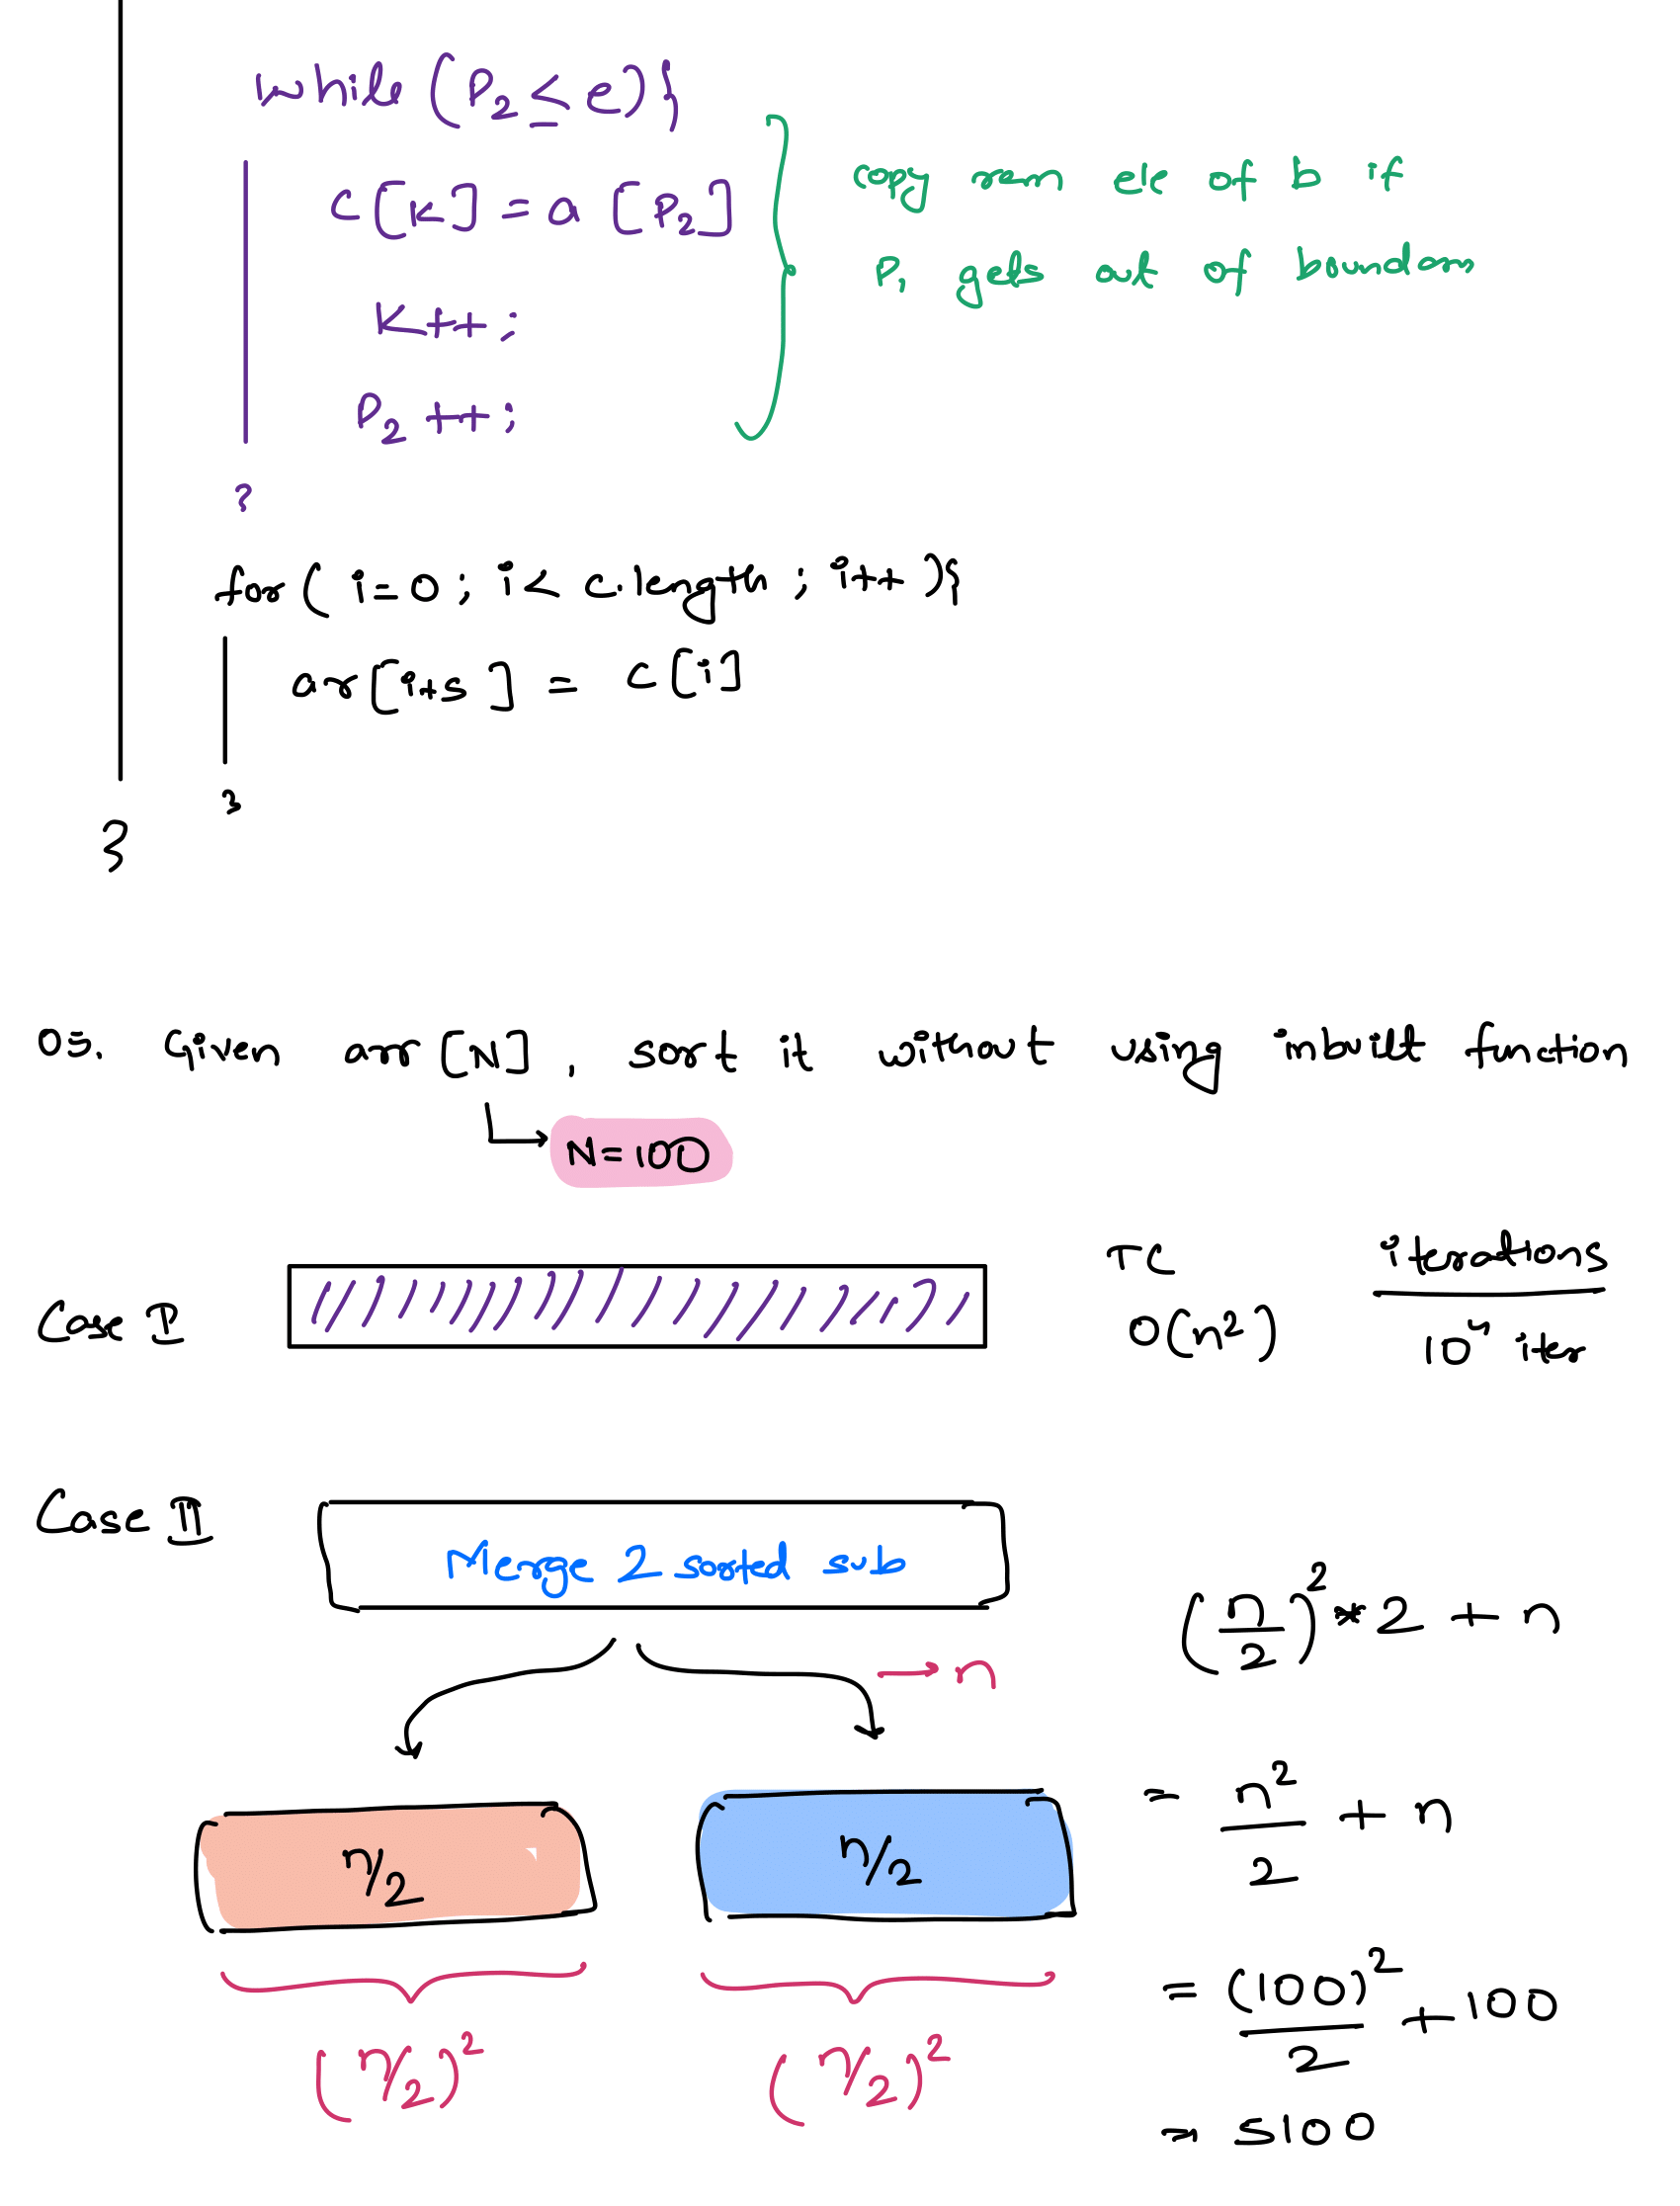 while (P₂ ≤ e){
c[k] = a [P₂]
k++ ;
P₂ ++ ;
}
copy rem ele of b if
P₁ gets out of boundary
for( i=0 ; i< c.length ; i++ ){
arr[i+s ] = c[i]
}
}
Q5. Given arr[N] , sort it without using inbuilt function
N=100
TC iterations
Case I O(n²) 10⁴ iter
Case II
Merge 2 sorted sub
(n/2)² * 2 + n
→ n
n/2 n/2
= n²/2 + n
= (100)²/2 + 100
(n/2)² (n/2)²
= 5100